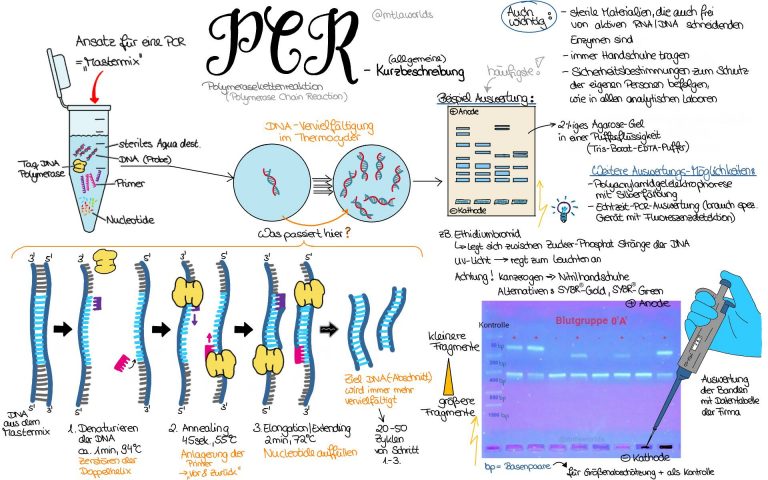 PCR
@mtlaworlds
Polymerasekettenreaktion
(Polymerase Chain Reaction)
(allgemeine)
- Kurzbeschreibung
Auch
wichtig:
- sterile Materialien, die auch frei
von aktiven RNA/DNA schneidenden
Enzymen sind
- immer Handschuhe tragen
- Sicherheitsbestimmungen zum Schutz
der eigenen Personen befolgen,
wie in allen analytischen Laboren
Ansatz für eine PCR
= "Mastermix"
steriles Aqua dest.
DNA (Probe)
Taq DNA
Polymerase
Primer
Nucleotide
DNA-Vervielfältigung
im Thermocycler
Was passiert hier?
häufigste!
Beispiel Auswertung:
⊕ Anode
⊖ Kathode
2%iges Agarose-Gel
in einer Pufferflüssigkeit
(Tris-Borat-EDTA-Puffer)
Weitere Auswertungs-Möglichkeiten:
- Polyacrylamidgelelektrophorese
mit Silberfärbung
- Echtzeit-PCR-Auswertung (brauch spez.
Gerät mit Fluoreszenzdetektion)
zB. Ethidiumbromid
↳ legt sich zwischen Zucker-Phosphat Stränge der DNA
UV-Licht → regt zum Leuchten an
Achtung! kanzerogen → Nitrilhandschuhe
Alternativen: SYBR®-Gold, SYBR®-Green
3' 5'
3' 5'
3' 5'
3' 5'
3' 5'
5' 3'
5' 3'
5' 3'
5' 3'
5' 3'
DNA
aus dem
Mastermix
1. Denaturieren
der DNA
ca. 1min, 94°C
Zerstören der
Doppelhelix
2. Annealing
45sek, 55°C
Anlagerung der
Primer
→ "vor & zurück"
3. Elongation/Extending
2min, 72°C
Nucleotide auffüllen
Ziel DNA(-Abschnitt)
wird immer mehr
vervielfältigt
20-50
Zyklen
von Schritt
1-3.
kleinere
Fragmente
größere
Fragmente
⊕ Anode
Kontrolle
Blutgruppe 0'A'
⊖ Kathode
Auswertung
der Banden
mit Datentabelle
der Firma
bp = Basenpaare
für Größenabschätzung + als Kontrolle